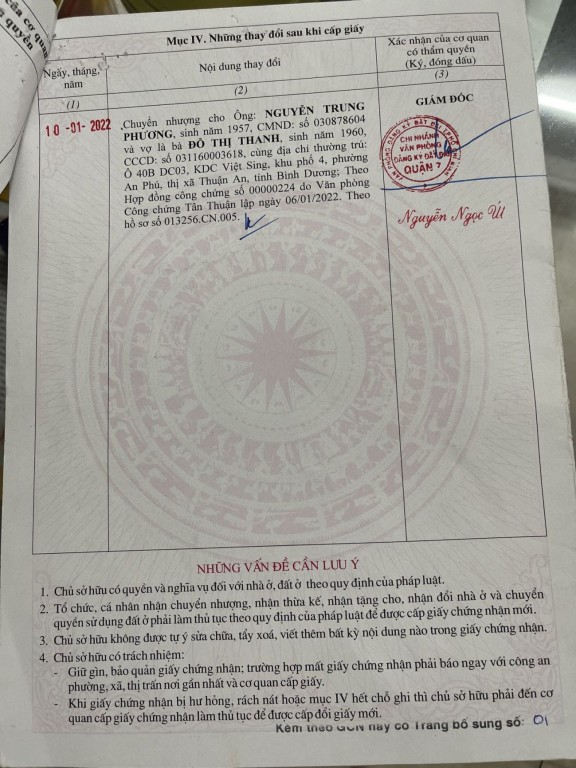 của cơ quan
quyền
Mục IV. Những thay đổi sau khi cấp giấy
Ngày, tháng, năm
Nội dung thay đổi
Xác nhận của cơ quan
có thẩm quyền
(Ký, đóng dấu)
(1)
(2)
(3)
10 -01- 2022
Chuyển nhượng cho Ông: NGUYỄN TRUNG
PHƯƠNG, sinh năm 1957, CMND: số 030878604
và vợ là bà ĐỖ THỊ THANH, sinh năm 1960,
CCCD: số 031160003618, cùng địa chỉ thường trú:
Ô 40B DC03, KDC Việt Sing, khu phố 4, phường
An Phú, thị xã Thuận An, tỉnh Bình Dương; Theo
Hợp đồng công chứng số 00000224 do Văn phòng
Công chứng Tân Thuận lập ngày 06/01/2022. Theo
hồ sơ số 013256.CN.005.
GIÁM ĐỐC
CHI NHÁNH
VĂN PHÒNG
ĐĂNG KÝ ĐẤT ĐAI
QUẬN 7
Nguyễn Ngọc Út
NHỮNG VẤN ĐỀ CẦN LƯU Ý
1. Chủ sở hữu có quyền và nghĩa vụ đối với nhà ở, đất ở theo quy định của pháp luật.
2. Tổ chức, cá nhân nhận chuyển nhượng, nhận thừa kế, nhận tặng cho, nhận đổi nhà ở và chuyển
quyền sử dụng đất ở phải làm thủ tục theo quy định của pháp luật để được cấp giấy chứng nhận mới.
3. Chủ sở hữu không được tự ý sửa chữa, tẩy xoá, viết thêm bất kỳ nội dung nào trong giấy chứng nhận.
4. Chủ sở hữu có trách nhiệm:
- Giữ gìn, bảo quản giấy chứng nhận; trường hợp mất giấy chứng nhận phải báo ngay với công an
phường, xã, thị trấn nơi gần nhất và cơ quan cấp giấy.
- Khi giấy chứng nhận bị hư hỏng, rách nát hoặc mục IV hết chỗ ghi thì chủ sở hữu phải đến cơ
quan cấp giấy chứng nhận làm thủ tục để được cấp đổi giấy mới.
Kèm theo GCN này có Trang bổ sung số: 01